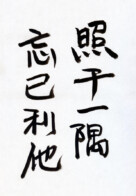 照于一隅
忘己利他